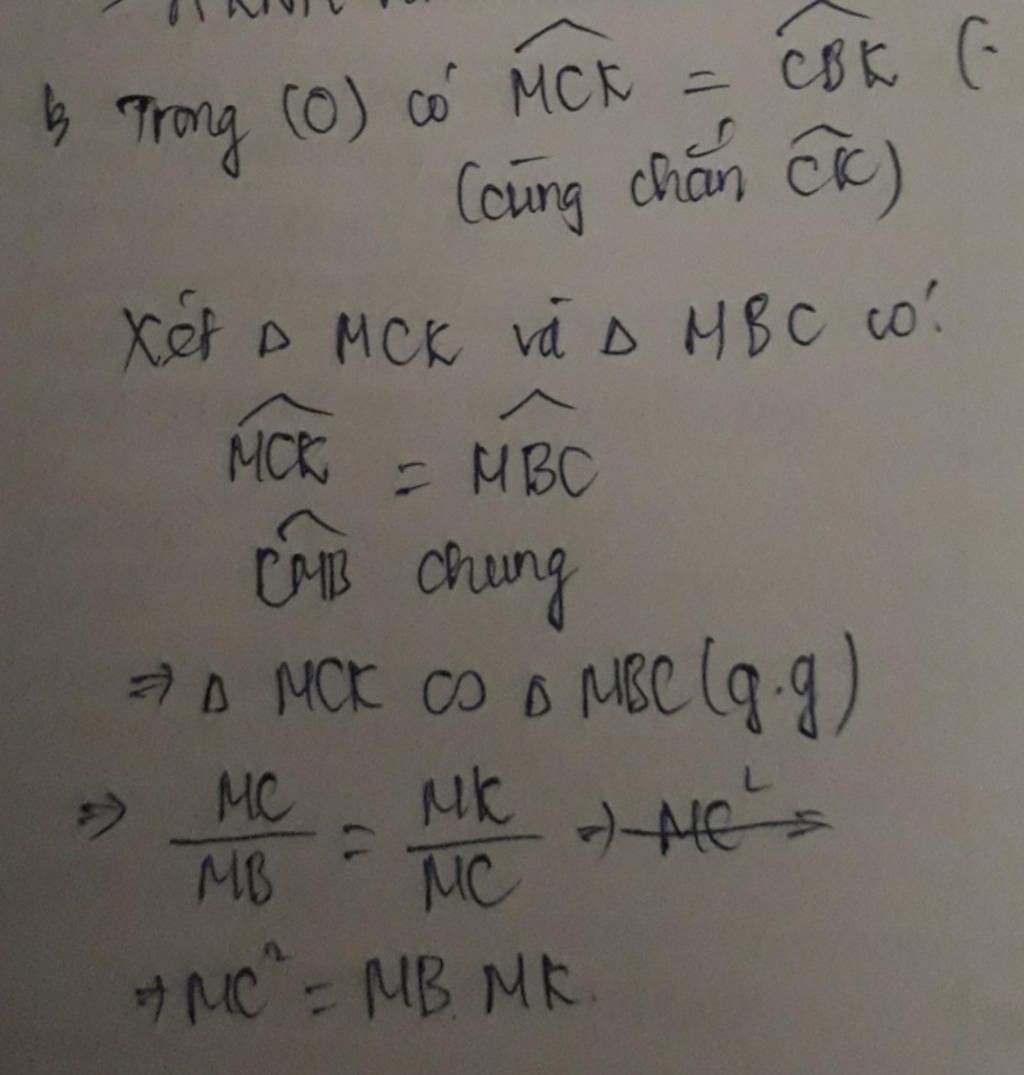 b, Trong (O) có \widehat{MCK} = \widehat{CBK} (
(cùng chắn \widehat{CK})
Xét Δ MCK và Δ MBC có:
\widehat{MCK} = \widehat{MBC}
\widehat{CMB} chung
⇒ Δ MCK ∽ Δ MBC (g.g)
⇒ \frac{MC}{MB} = \frac{MK}{MC} ⇒ MC²
⇒ MC² = MB. MK.